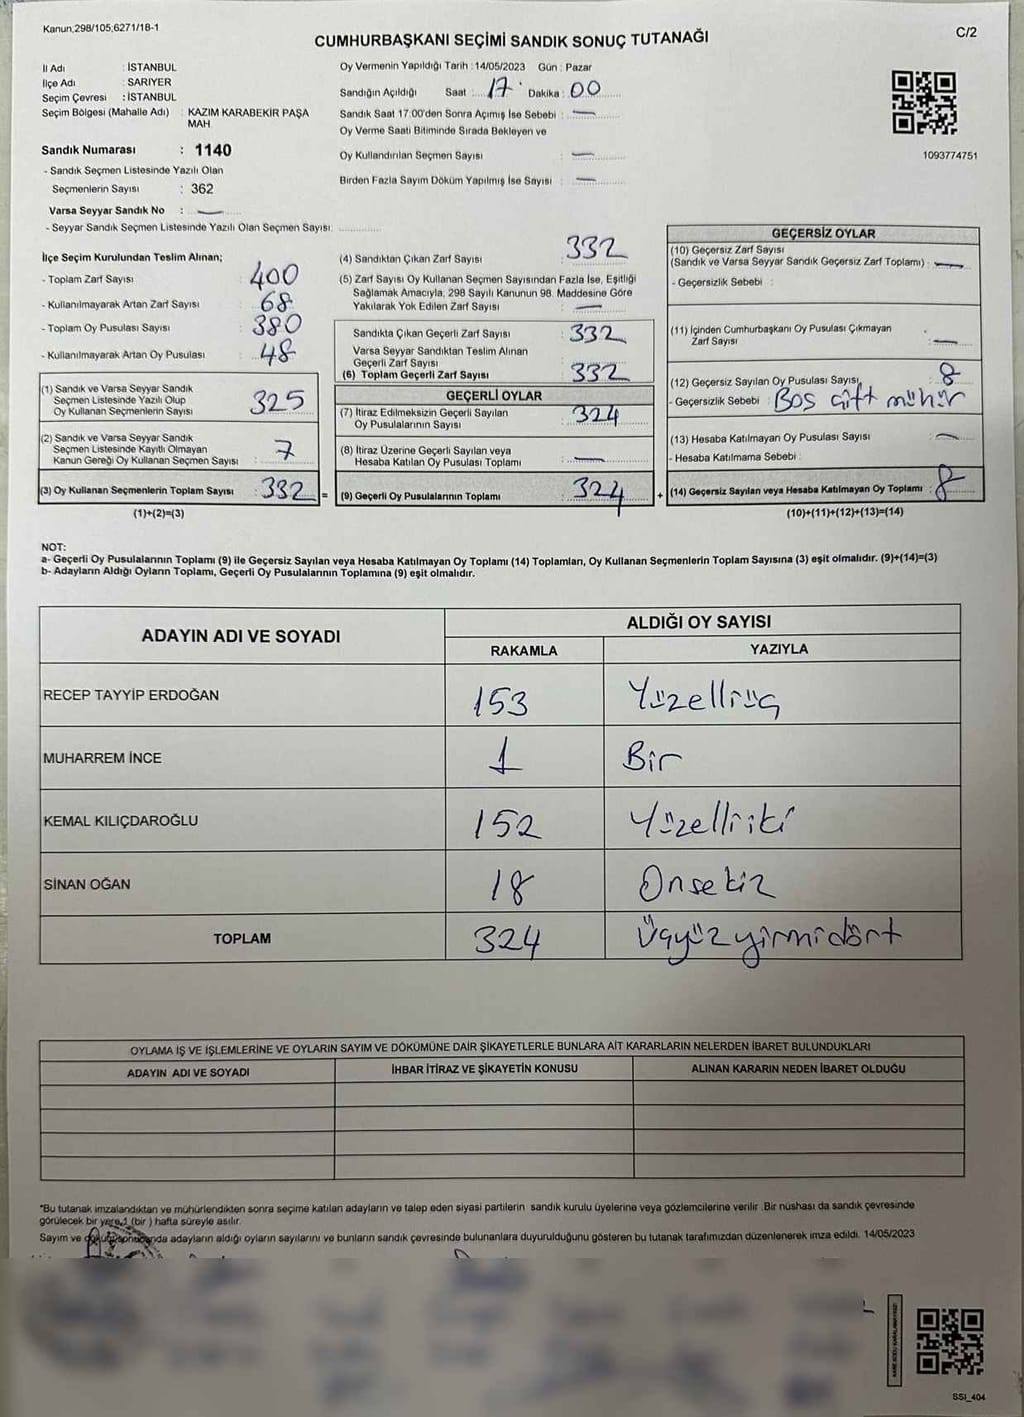 Kanun,298/105,6271/18-1
C/2
CUMHURBAŞKANI SEÇİMİ SANDIK SONUÇ TUTANAĞI
İl Adı : İSTANBUL
İlçe Adı : SARIYER
Seçim Çevresi : İSTANBUL
Seçim Bölgesi (Mahalle Adı) : KAZIM KARABEKİR PAŞA
MAH.
Sandık Numarası : 1140
- Sandık Seçmen Listesinde Yazılı Olan
Seçmenlerin Sayısı : 362
Varsa Seyyar Sandık No : —
- Seyyar Sandık Seçmen Listesinde Yazılı Olan Seçmen Sayısı: ..............
Oy Vermenin Yapıldığı Tarih : 14/05/2023 Gün : Pazar
Sandığın Açıldığı Saat : 17 Dakika : 00
Sandık Saat 17:00'den Sonra Açımış İse Sebebi : —
Oy Verme Saati Bitiminde Sırada Bekleyen ve
Oy Kullandırılan Seçmen Sayısı : —
Birden Fazla Sayım Döküm Yapılmış İse Sayısı : —
1093774751
İlçe Seçim Kurulundan Teslim Alınan;
- Toplam Zarf Sayısı : 400
- Kullanılmayarak Artan Zarf Sayısı : 68
- Toplam Oy Pusulası Sayısı : 380
- Kullanılmayarak Artan Oy Pusulası : 48
(1) Sandık ve Varsa Seyyar Sandık
Seçmen Listesinde Yazılı Olup
Oy Kullanan Seçmenlerin Sayısı : 325
(2) Sandık ve Varsa Seyyar Sandık
Seçmen Listesinde Kayıtlı Olmayan
Kanun Gereği Oy Kullanan Seçmen Sayısı : 7
(3) Oy Kullanan Seçmenlerin Toplam Sayısı : 332 =
(1)+(2)=(3)
(4) Sandıktan Çıkan Zarf Sayısı : 332
(5) Zarf Sayısı Oy Kullanan Seçmen Sayısından Fazla İse, Eşitliği
Sağlamak Amacıyla, 298 Sayılı Kanunun 98. Maddesine Göre
Yakılarak Yok Edilen Zarf Sayısı : —
Sandıkta Çıkan Geçerli Zarf Sayısı : 332
Varsa Seyyar Sandıktan Teslim Alınan
Geçerli Zarf Sayısı
(6) Toplam Geçerli Zarf Sayısı : 332
GEÇERLİ OYLAR
(7) İtiraz Edilmeksizin Geçerli Sayılan
Oy Pusulalarının Sayısı : 324
(8) İtiraz Üzerine Geçerli Sayılan veya
Hesaba Katılan Oy Pusulası Toplamı : —
(9) Geçerli Oy Pusulalarının Toplamı : 324 +
GEÇERSİZ OYLAR
(10) Geçersiz Zarf Sayısı
(Sandık ve Varsa Seyyar Sandık Geçersiz Zarf Toplamı) : —
- Geçersizlik Sebebi :
(11) İçinden Cumhurbaşkanı Oy Pusulası Çıkmayan
Zarf Sayısı : —
(12) Geçersiz Sayılan Oy Pusulası Sayısı : 8
- Geçersizlik Sebebi : Boş çift mühür
(13) Hesaba Katılmayan Oy Pusulası Sayısı : —
- Hesaba Katılmama Sebebi :
(14) Geçersiz Sayılan veya Hesaba Katılmayan Oy Toplamı : 8
(10)+(11)+(12)+(13)=(14)
NOT:
a- Geçerli Oy Pusulalarının Toplamı (9) ile Geçersiz Sayılan veya Hesaba Katılmayan Oy Toplamı (14) Toplamları, Oy Kullanan Seçmenlerin Toplam Sayısına (3) eşit olmalıdır. (9)+(14)=(3)
b- Adayların Aldığı Oyların Toplamı, Geçerli Oy Pusulalarının Toplamına (9) eşit olmalıdır.
ADAYIN ADI VE SOYADI
ALDIĞI OY SAYISI
RAKAMLA YAZIYLA
RECEP TAYYİP ERDOĞAN 153 Yüzelliüç
MUHARREM İNCE 1 Bir
KEMAL KILIÇDAROĞLU 152 Yüzelliiki
SİNAN OĞAN 18 Onsekiz
TOPLAM 324 Üçyüzyirmidört
OYLAMA İŞ VE İŞLEMLERİNE VE OYLARIN SAYIM VE DÖKÜMÜNE DAİR ŞİKAYETLERLE BUNLARA AİT KARARLARIN NELERDEN İBARET BULUNDUKLARI
ADAYIN ADI VE SOYADI İHBAR İTİRAZ VE ŞİKAYETİN KONUSU ALINAN KARARIN NEDEN İBARET OLDUĞU
*Bu tutanak imzalandıktan ve mühürlendikten sonra seçime katılan adayların ve talep eden siyasi partilerin sandık kurulu üyelerine veya gözlemcilerine verilir. Bir nüshası da sandık çevresinde
görülecek bir yere 1 (bir ) hafta süreyle asılır.
Sayım ve döküm sonucunda adayların aldığı oyların sayılarını ve bunların sandık çevresinde bulunanlara duyurulduğunu gösteren bu tutanak tarafımızdan düzenlenerek imza edildi. 14/05/2023
SSI_404